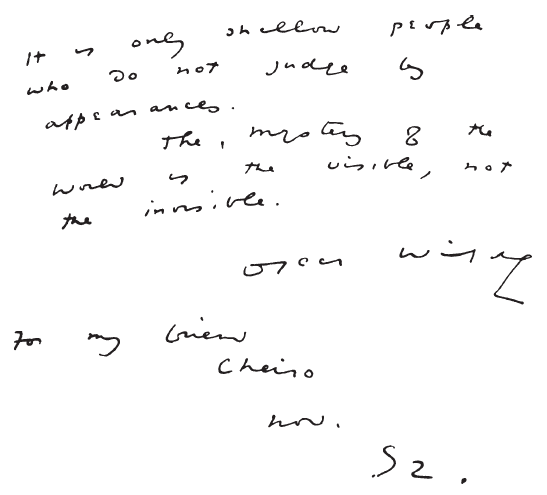 It is only shallow people
who do not judge by
appearances.
The mystery of the
world is the visible, not
the invisible.
Oscar Wilde
For my friend
Cheiro
nov.
92.